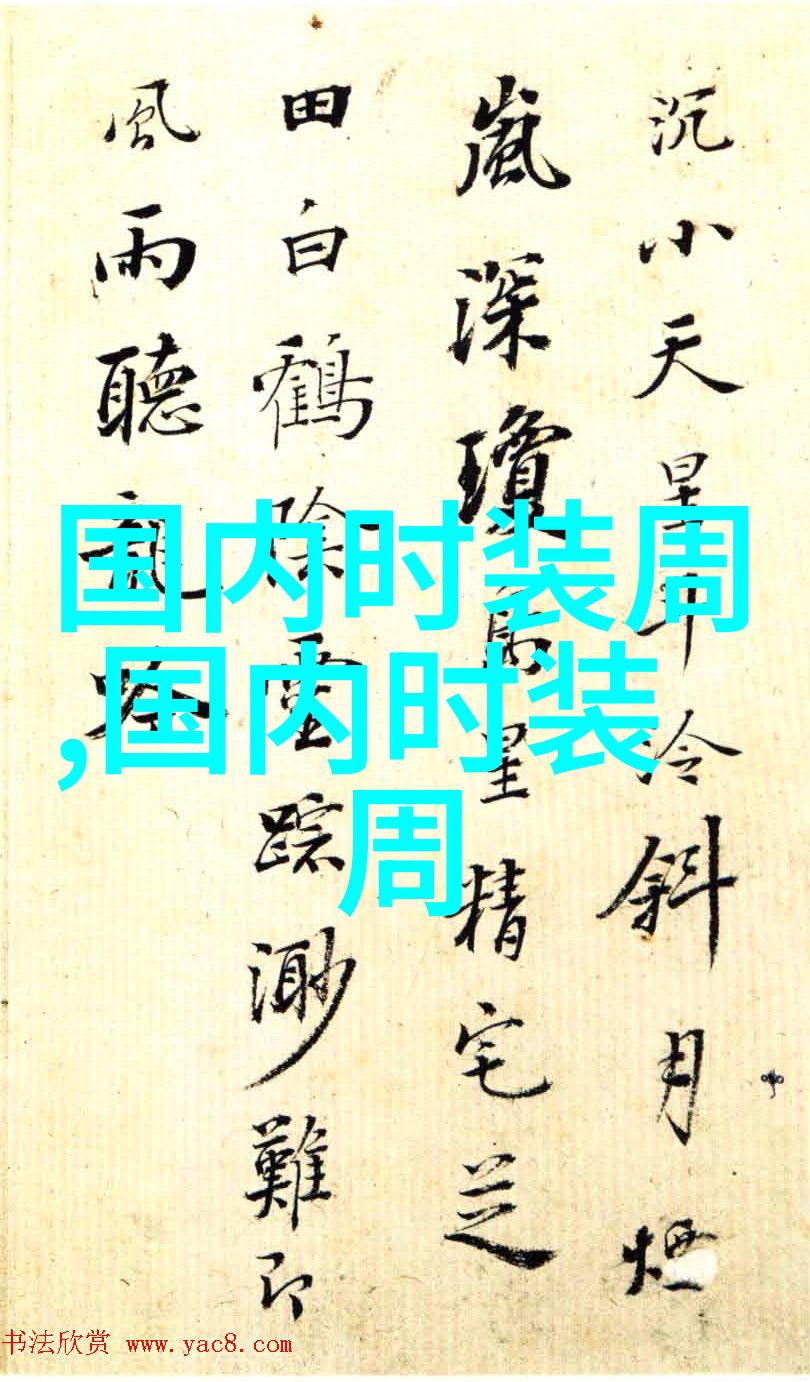 沉小天星斗冷斜月煙
嵐深瓊島星精宅芝
田白鶴靈踪渺難即
風雨聽龍吟
国内时装周
,国内时装
周
书法欣赏 www.yac8.com